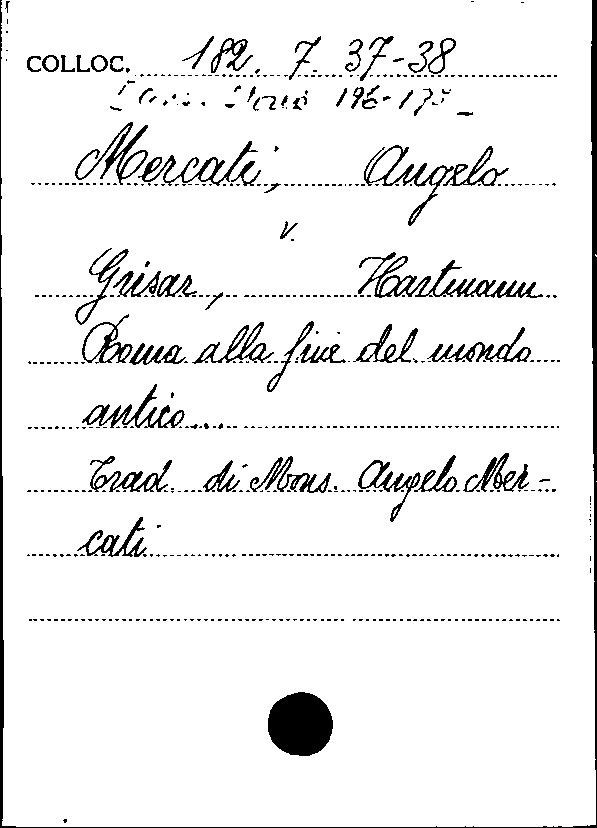 COLLOC. 182. 7. 37-38
Mercati, Angelo
v.
Grisar, Hartmann
Roma alla fine del mondo
antico...
Trad. di Mons. Angelo Mer-
cati